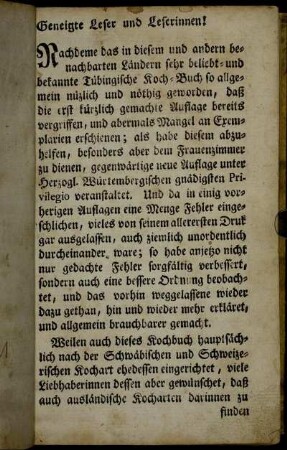 Geneigte Leser und Leserinnen!
Nachdeme das in diesem und andern be-
nachbarten Ländern sehr beliebt- und
bekannte Tübingische Koch-Buch so allge-
mein nüzlich und nöthig geworden, daß
die erst kürzlich gemachte Auflage bereits
vergriffen, und abermals Mangel an Exem-
plarien erschienen; als habe diesem abzu-
helfen, besonders aber dem Frauenzimmer
zu dienen, gegenwärtige neue Auflage unter
Herzogl. Würtembergischen gnädigsten Pri-
vilegio veranstaltet. Und da in einig vor-
herigen Auflagen eine Menge Fehler einge-
schlichen, vieles von seinem allerersten Druk
gar ausgelassen, auch ziemlich unordentlich
durcheinander ware; so habe anjetzo nicht
nur gedachte Fehler sorgfältig verbessert,
sondern auch eine bessere Ordnung beobach-
tet, und das vorhin weggelassene wieder
dazu gethan, hin und wieder mehr erkläret,
und allgemein brauchbarer gemacht.
Weilen auch dieses Kochbuch hauptsäch-
lich nach der Schwäbischen und Schweize-
rischen Kochart ehedessen eingerichtet, viele
Liebhaberinnen dessen aber gewünschet, daß
auch ausländische Kocharten darinnen zu
finden